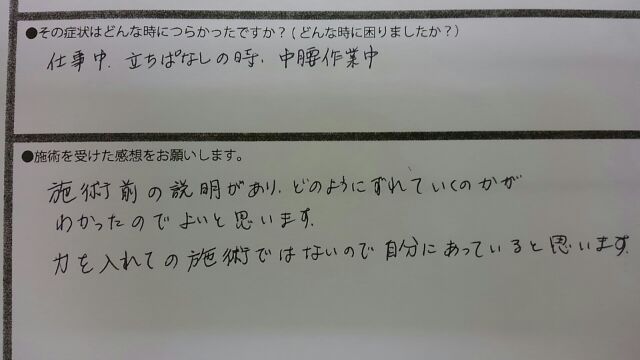 ●その症状はどんな時につらかったですか？(どんな時に困りましたか？)
仕事中、立ちぱなしの時、中腰作業中
●施術を受けた感想をお願いします。
施術前の説明があり、どのようにずれていくのかが
わかったのでよいと思います。
力を入れての施術ではないので自分にあっていると思います。